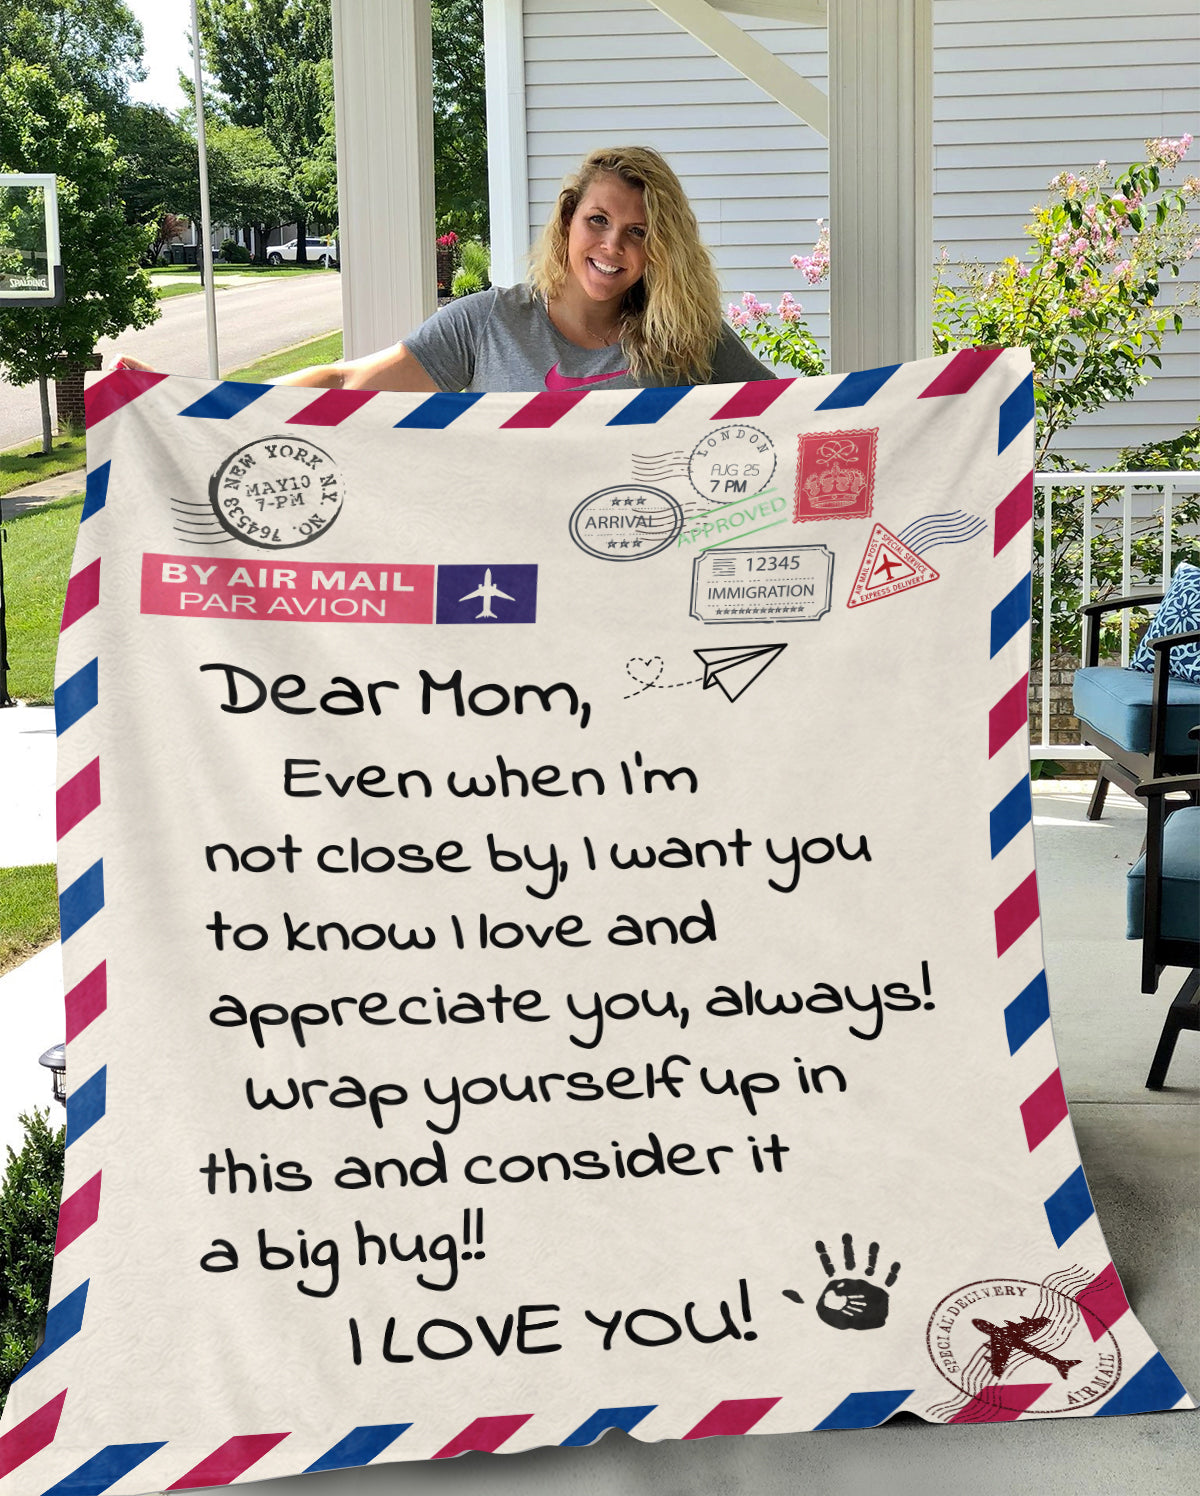 SPALDING
NEW YORK N.Y.
MAY10
7-PM
NO. 764538
LONDON
AUG 25
7 PM
ARRIVAL
APPROVED
12345
IMMIGRATION
AIR MAIL ★ POST ★ SPECIAL SERVICE
★ EXPRESS DELIVERY ★
BY AIR MAIL
PAR AVION
Dear Mom,
Even when I'm
not close by, I want you
to know I love and
appreciate you, always!
Wrap yourself up in
this and consider it
a big hug!!
I LOVE YOU!
SPECIAL DELIVERY
AIR MAIL